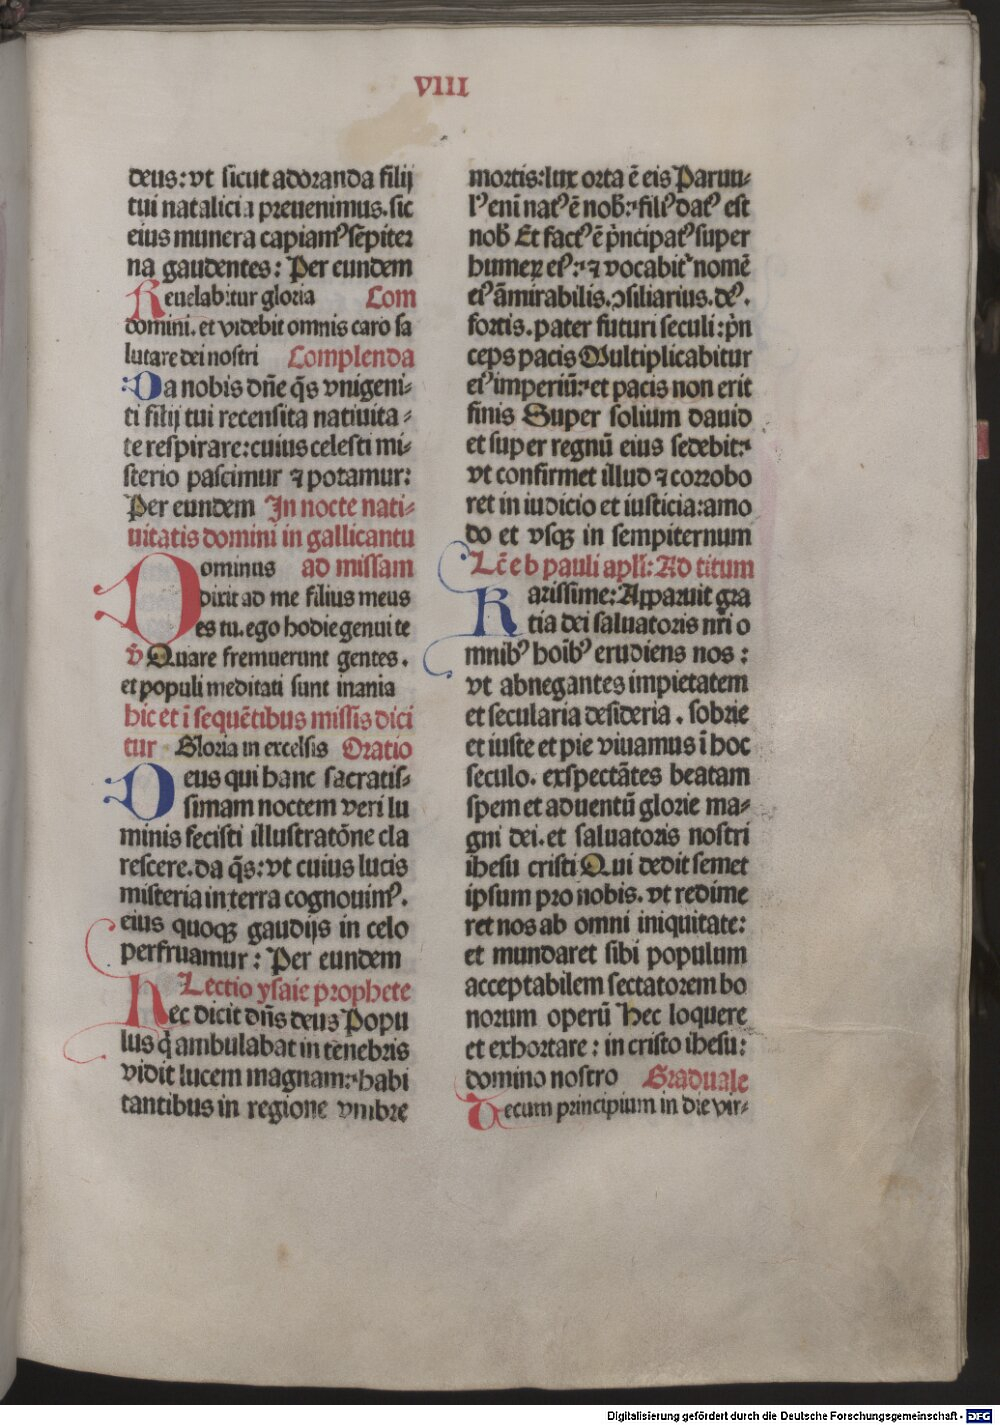 VIII
deus: vt sicut adoranda filij
tui natalicia preuenimus. sic
eius munera capiamꝰ sēpiter
na gaudentes: Per eundem
Reuelabitur gloria Com
domini. et videbit omnis caro sa
lutare dei nostri Complenda
Da nobis dn̄e q̄s vnigeni⸗
ti filij tui recensita natiuita⸗
te respirare: cuius celesti mi⸗
sterio pascimur ⁊ potamur:
Per eundem In nocte nati⸗
uitatis domini in gallicantu
Dominus ad missam
dixit ad me filius meus
es tu. ego hodie genui te
v̄ Quare fremuerunt gentes.
et populi meditati sunt inania
hic et ī sequētibus missis dici
tur Gloria in excelsis Oratio
Deus qui hanc sacratis⸗
simam noctem veri lu
minis fecisti illustratōne cla
rescere. da q̄s: vt cuius lucis
misteria in terra cognouimꝰ.
eius quoqꝫ gaudijs in celo
perfruamur: Per eundem
Lectio ysaie prophete
Hec dicit dn̄s deus Popu
lus q̄ ambulabat in tenebris
vidit lucem magnam: habi
tantibus in regione vmbre
mortis: lux orta ē eis Paruu⸗
lꝰ enī natꝰ ē nob̄: filiꝰ datꝰ est
nob̄ Et factꝰ ē p̄ncipatꝰ super
humeꝝ eiꝰ: ⁊ vocabit᷑ nomē
eiꝰ āmirabilis. ↄsiliarius. deꝰ.
fortis. pater futuri seculi: p̄n
ceps pacis Multiplicabitur
eiꝰ imperiū: et pacis non erit
finis Super solium dauid
et super regnū eius sedebit:
vt confirmet illud ⁊ corrobo
ret in iudicio et iusticia: amo
do et vsqꝫ in sempiternum
Lc̄e b pauli apl̄i: Ad titum
Karissime: Apparuit gra
tia dei saluatoris nr̄i o
mnibꝰ hoībꝰ erudiens nos:
vt abnegantes impietatem
et secularia desideria. sobrie
et iuste et pie viuamus ī hoc
seculo. exspectātes beatam
spem et aduentū glorie ma⸗
gni dei. et saluatoris nostri
ihesu cristi Qui dedit semet
ipsum pro nobis. vt redime
ret nos ab omni iniquitate:
et mundaret sibi populum
acceptabilem sectatorem bo
norum operū Hec loquere
et exhortare: in cristo ihesu:
domino nostro Graduale
Tecum principium in die vir⸗
Digitalisierung gefördert durch die Deutsche Forschungsgemeinschaft - DFG